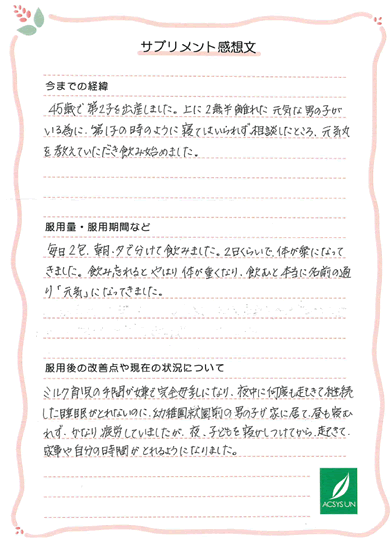 サプリメント感想文
今までの経緯
45歳で第2子を出産しました。上に2歳半離れた元気な男の子が
いる為に、第1子の時のように寝てはいられず相談したところ、元気丸
を教えていただき飲み始めました。
服用量・服用期間など
毎日2包、朝・夕で分けて飲みました。2日くらいで、体が楽になって
きました。飲み忘れるとやはり体が重くなり、飲むと本当に名前の通
り「元気」になってきました。
服用後の改善点や現在の状況について
ミルク育児の手間が嫌で完全母乳になり、夜中に何度も起きて継続
した睡眠がとれないのに、幼稚園就園前の男の子が家に居て、昼も寝む
れず、かなり疲労していましたが、夜、子どもを寝かしつけてから、起きて、
家事や自分の時間がとれるようになりました。
ACSYSUN